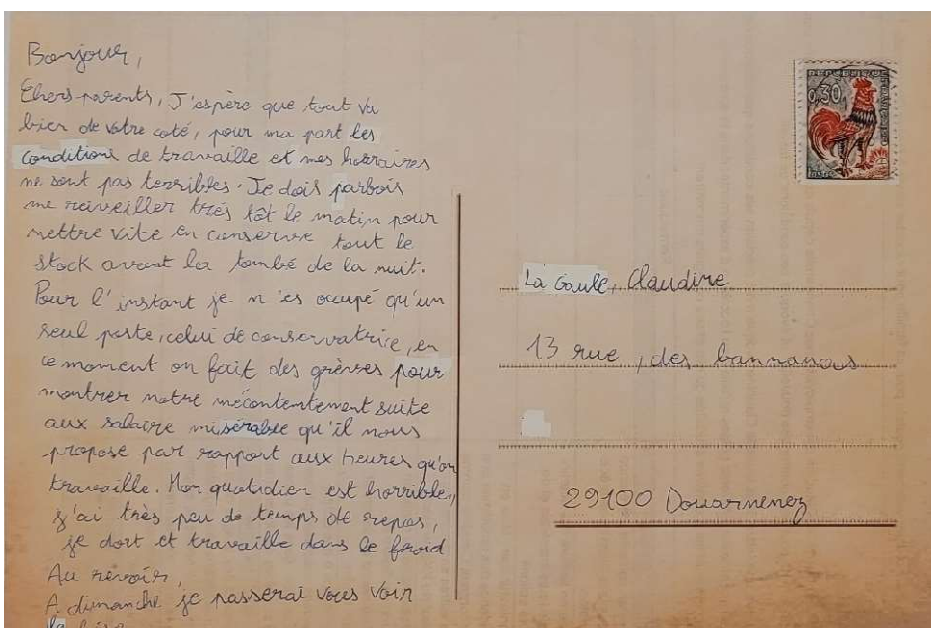 Bonjour,
Chers parents, J'espère que tout va
bien de votre coté, pour ma part les
conditions de travaille et mes horraires
ne sont pas terribles. Je dois parbois
me reiveiller très tôt le matin pour
mettre vite en conserve tout le
stock avant la tombé de la nuit.
Pour l'instant je n'es occupé qu'un
seul poste, celui de conservatrice, en
ce moment on fait des grèves pour
montrer notre mécontentement suite
aux salaire misérable qu'il nous
propose par rapport aux heures qu'on
travaille. Mon quotidien est horrible,
j'ai très peu de temps de repos,
je dort et travaille dans le froid
Au revoir,
A dimanche je passerai vous voir
la bise
0,30
La Goule, Claudine
13 rue, des bannanous
29100 Douarnenez